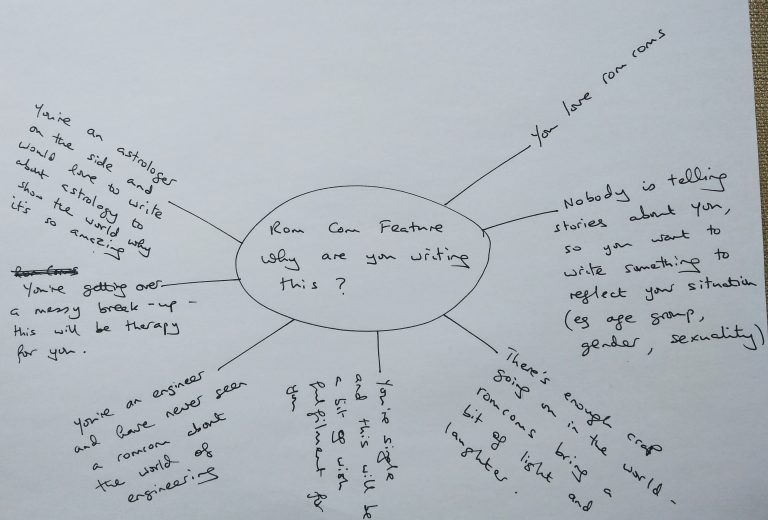 Rom Com Feature
why are you writing
this ?
You love rom coms
Nobody is telling
stories about you,
so you want to
write something to
reflect your situation
(eg age group,
gender, sexuality)
There's enough crap
going on in the world -
romcoms bring a
bit of light and
laughter.
You're single
and this will be
a bit of wish
fulfilment for
you
You're an engineer
and have never seen
a romcom about
the world of
engineering
Rom Coms
You're getting over
a messy break-up -
this will be therapy
for you.
You're an astrologer
on the side and
would love to write
about astrology to
show the world why
it's so amazing